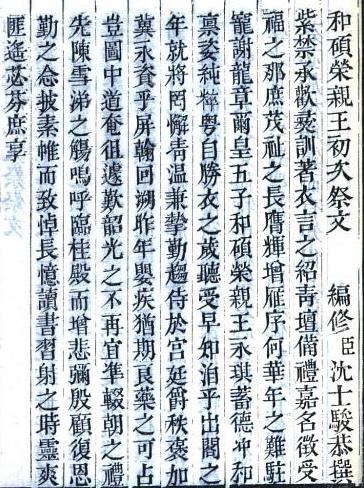 和碩榮親王初次祭文　編修臣沈士駿恭撰
紫禁承歡彛訓著衣言之紹靑壇備禮嘉名徵受
福之那庶茂祉之長膺輝增雁序何華年之難駐
寵謝龍章爾皇五子和碩榮親王永琪蓄德冲和
禀姿純粹粤自勝衣之歲聽受早如洎乎出閤之
年就將罔懈靑溫兼摯勤趨侍於宮廷爵秩褒加
冀永資乎屏翰回溯昨年嬰疾猶期艮藥之可占
豈圖中道奄徂遽歎韶光之不再宜準輟朝之禮
先陳雪涕之觴嗚呼臨桂殿而增悲彌殷顧復恩
勤之念披素帷而致悼長憶讀書習射之時靈爽
匪遙苾芬庶享